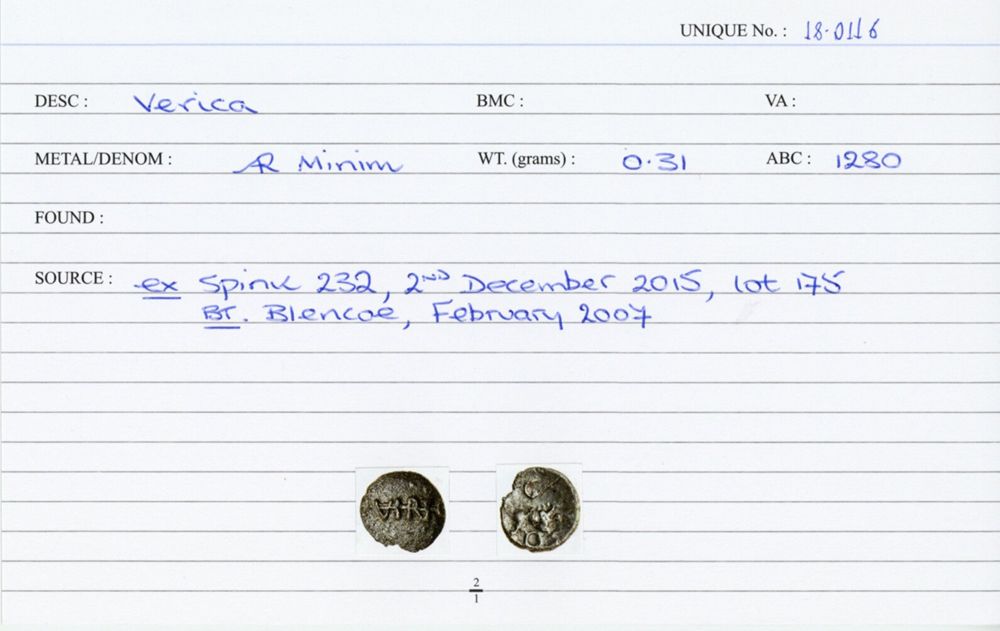 UNIQUE No. : 18·0116
DESC : Verica BMC : VA :
METAL/DENOM : AR Minim WT. (grams) : 0·31 ABC : 1280
FOUND :
SOURCE : ex Spink 232, 2ND December 2015, lot 175
BT. Blencoe, February 2007
2
1